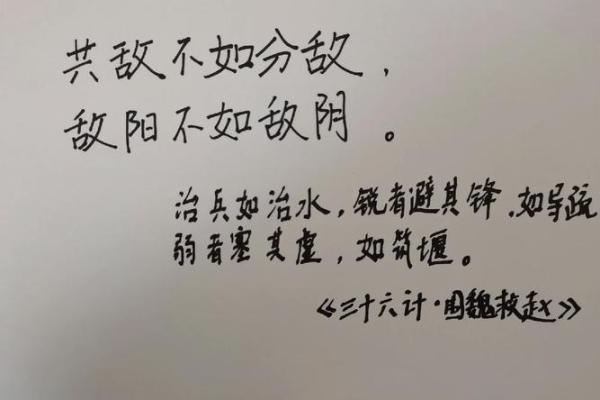 共敌不如分敌,
敌阳不如敌阴。
治兵如治水,锐者避其锋,如导疏
弱者塞其虚,如筑堰。
《三十六计·围魏救赵》